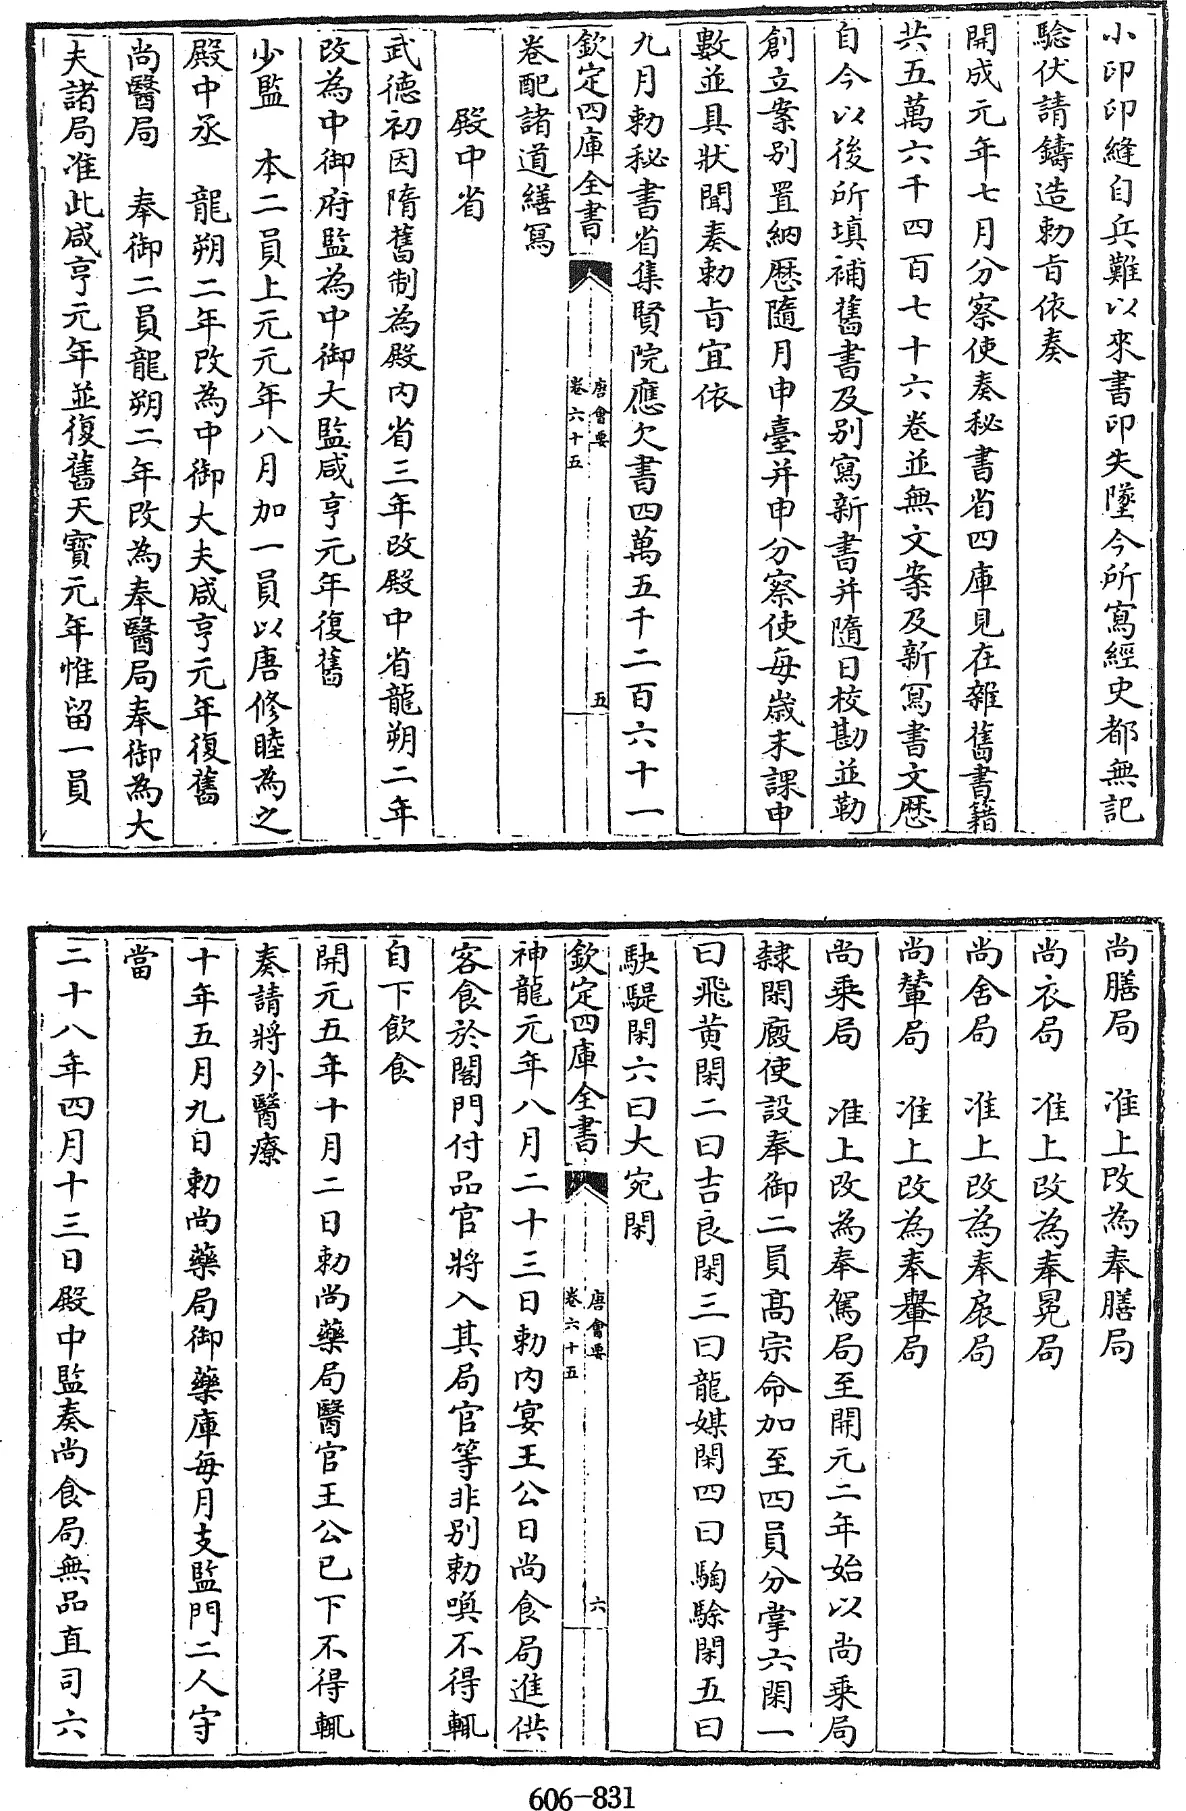 小印印縫自兵難以來書印失墜今所寫經史都無記
驗伏請鑄造勅旨依奏
開成元年七月分察使奏秘書省四庫見在雜舊書籍
共五萬六千四百七十六卷並無文案及新寫書文歷
自今以後所填補舊書及别寫新書并隨日校勘並勒
創立案别置納歷隨月申臺并申分察使每歲末課申
數並具狀聞奏勅旨宜依
九月勅秘書省集賢院應欠書四萬五千二百六十一
欽定四庫全書
唐會要
卷六十五
五
卷配諸道繕寫
殿中省
武德初因隋舊制為殿内省三年改殿中省龍朔二年
改為中御府監為中御大監咸亨元年復舊
少監 本二員上元元年八月加一員以唐修睦為之
殿中丞 龍朔二年改為中御大夫咸亨元年復舊
尚醫局 奉御二員龍朔二年改為奉醫局奉御為大
夫諸局准此咸亨元年並復舊天寶元年惟留一員
尚膳局 准上改為奉膳局
尚衣局 准上改為奉冕局
尚舍局 准上改為奉扆局
尚輦局 准上改為奉轝局
尚乘局 准上改為奉駕局至開元二年始以尚乘局
隸閑廄使設奉御二員高宗命加至四員分掌六閑一
曰飛黄閑二曰吉良閑三曰龍媒閑四曰騊駼閑五曰
駃騠閑六曰大宛閑
欽定四庫全書
唐會要
卷六十五
六
神龍元年八月二十三日勅内宴王公日尚食局進供
客食於閣門付品官將入其局官等非别勅喚不得輒
自下飲食
開元五年十月二日勅尚藥局醫官王公已下不得輒
奏請將外醫療
十年五月九日勅尚藥局御藥庫每月支監門二人守
當
二十八年四月十三日殿中監奏尚食局無品直司六
606-831